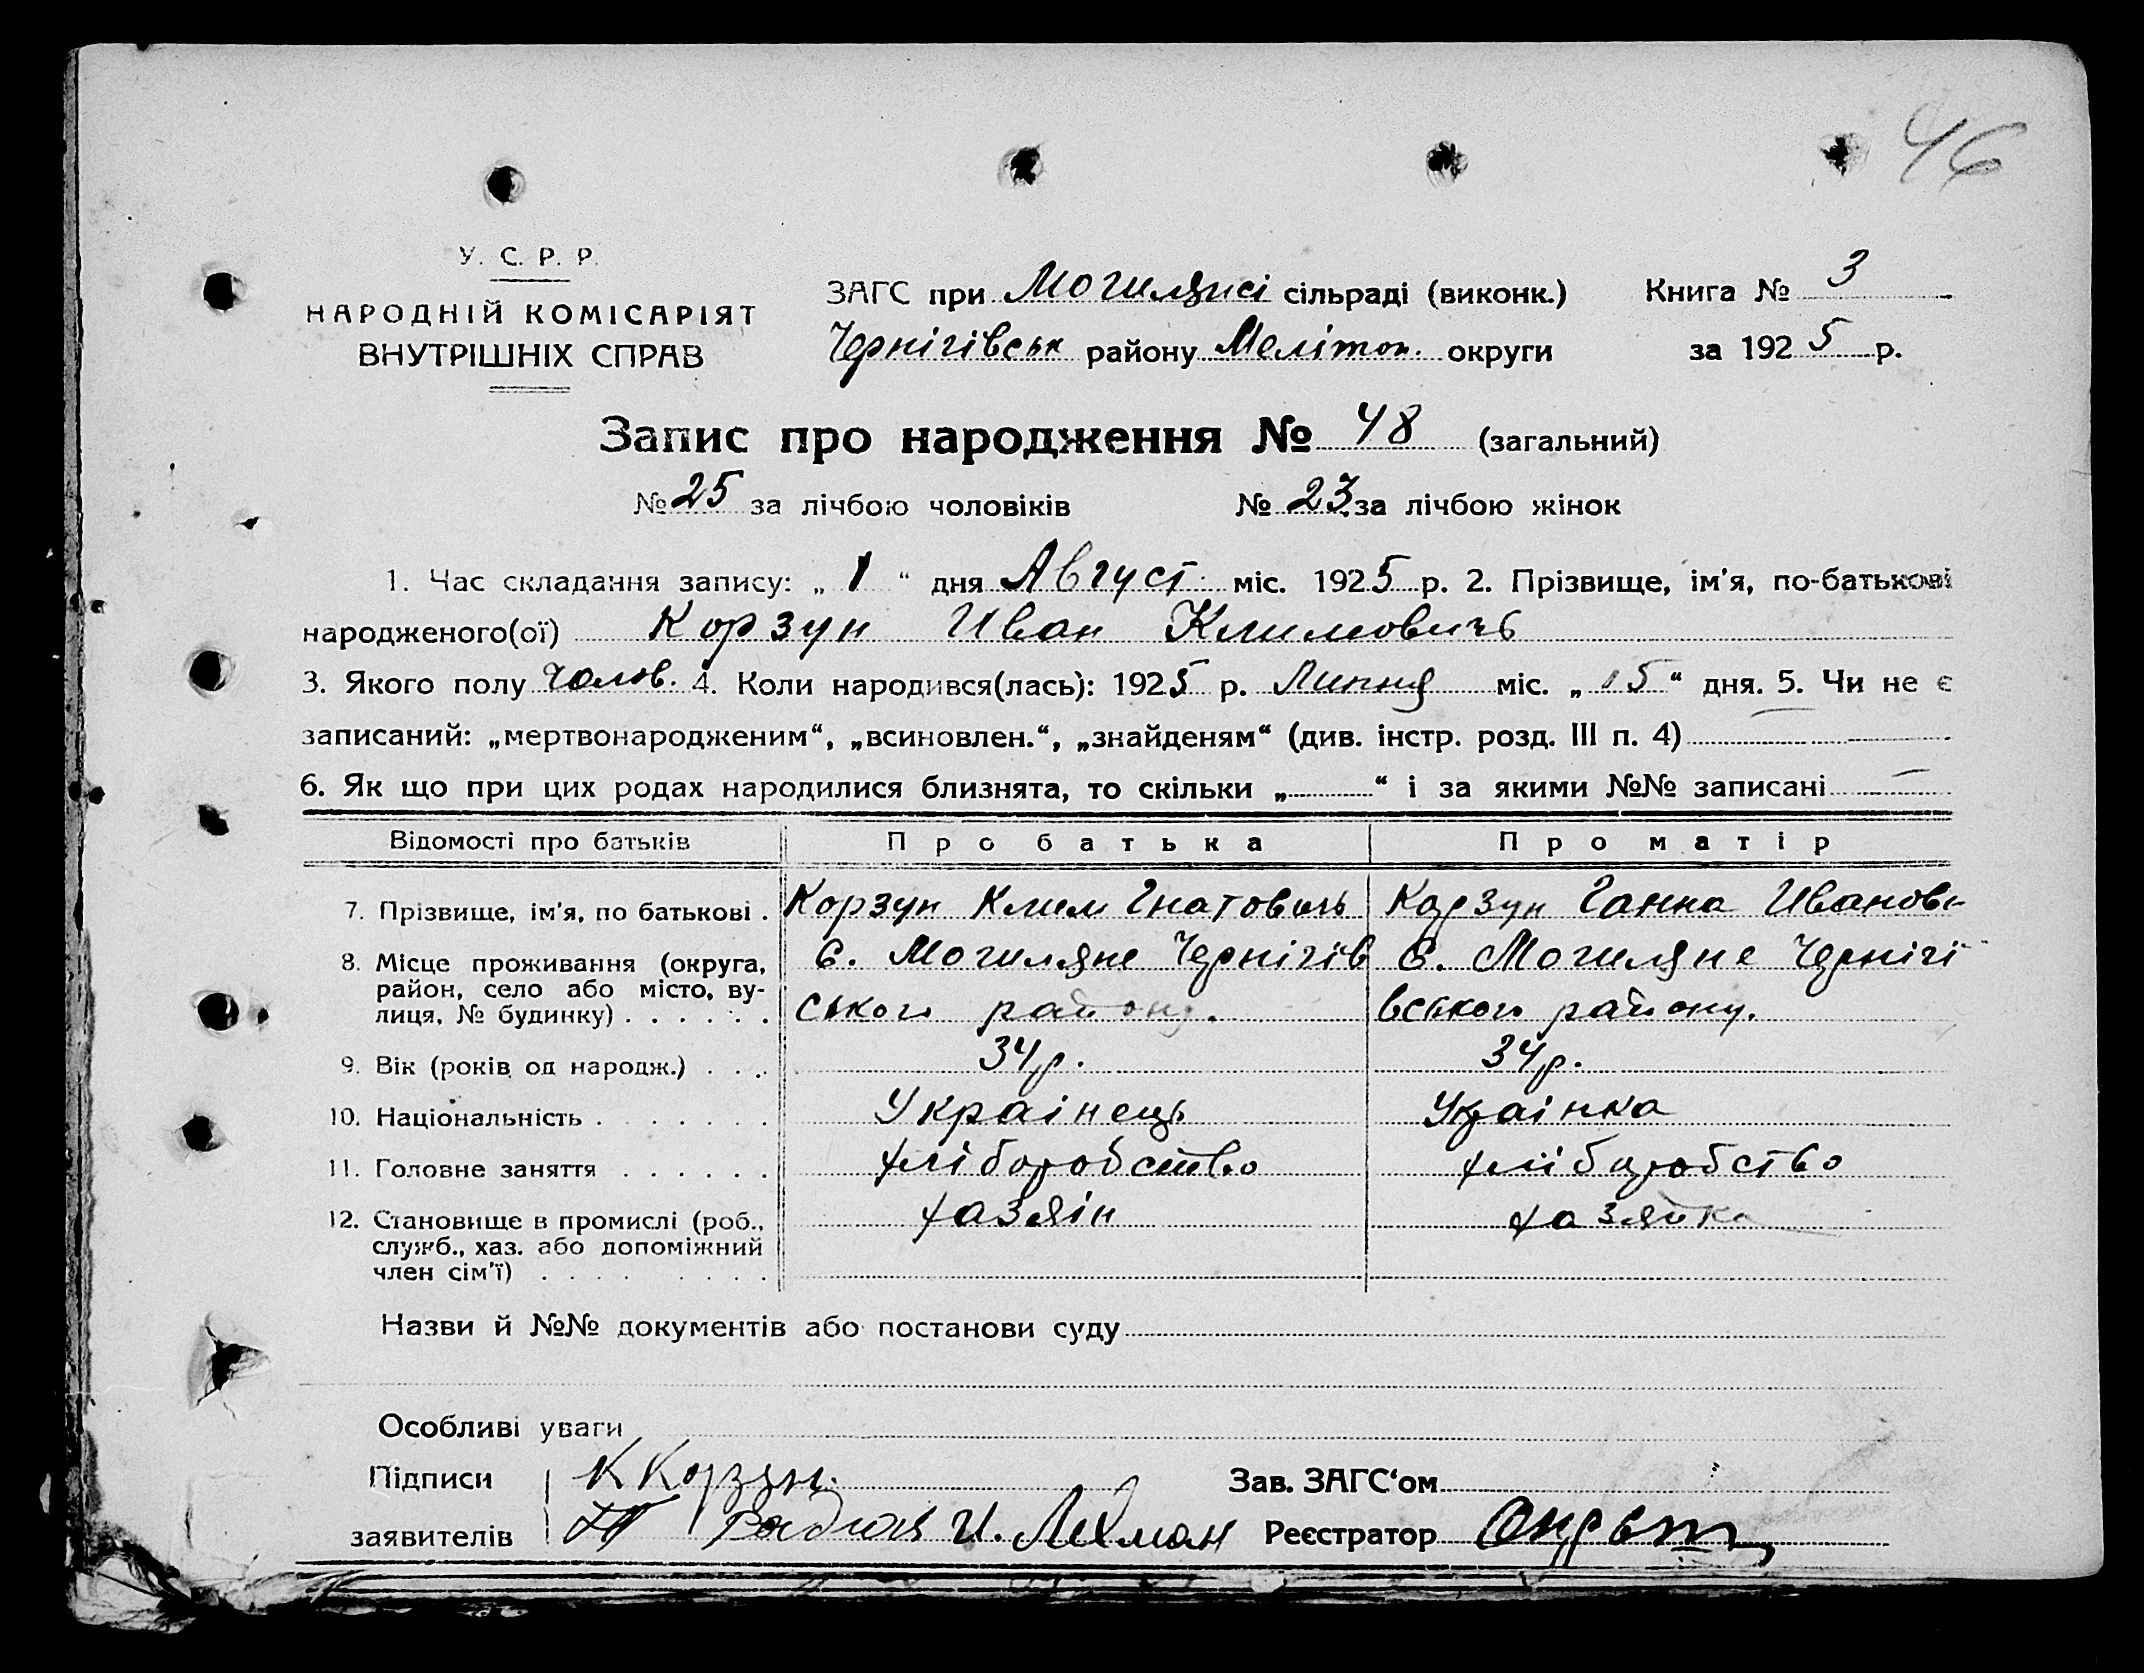 46
У. С. Р. Р.
НАРОДНІЙ КОМІСАРІЯТ
ВНУТРІШНІХ СПРАВ
ЗАГС при Могиляnсі сільраді (виконк.)
Чернігівськ района Меліtоп. округи
Книга № 3
за 1925 р.
Запис про народження № 48 (загальний)
№ 25 за лічбою чоловіків № 23 за лічбою жінок
1. Час складання запису: „ 1 “ дня Август міс. 1925 р. 2. Прізвище, ім'я, по-батькові
народженого(ої) Корзун Иван Климовичь
3. Якого полу чолов. 4. Коли народився(лась): 1925 р. Липня міс. „ 15 “ дня. 5. Чи не є
записаний: „мертвонародженим“, „всиновлен.“, „знайденям“ (див. інстр. розд. III п. 4)
6. Як що при цих родах народилися близнята, то скільки „ “ і за якими №№ записані
Відомості про батьків Про батька Про матір
7. Прізвище, ім'я, по батькові . Корзун Клим Гнатовичь Корзун Ганна Иванов
8. Місце проживання (округа, район, село або місто, вулиця, № будинку) . . . . . . с. Могиляне Чернігів с. Могиляне Чернігі
ського району. вського району.
9. Вік (років од народж.) . . . 34 р. 34 р.
10. Національність . . . . . . . Украінець Украінка
11. Головне заняття . . . . . . хліборобство хліборобство
12. Становище в промислі (роб., служб., хаз. або допоміжний член сім'ї) . . . . . . . . хазяін хазяйка
Назви й №№ документів або постанови суду
Особливі уваги
Підписи К Корзун.
Зав. ЗАГС'ом
заявителів И. Лахман Реєстратор